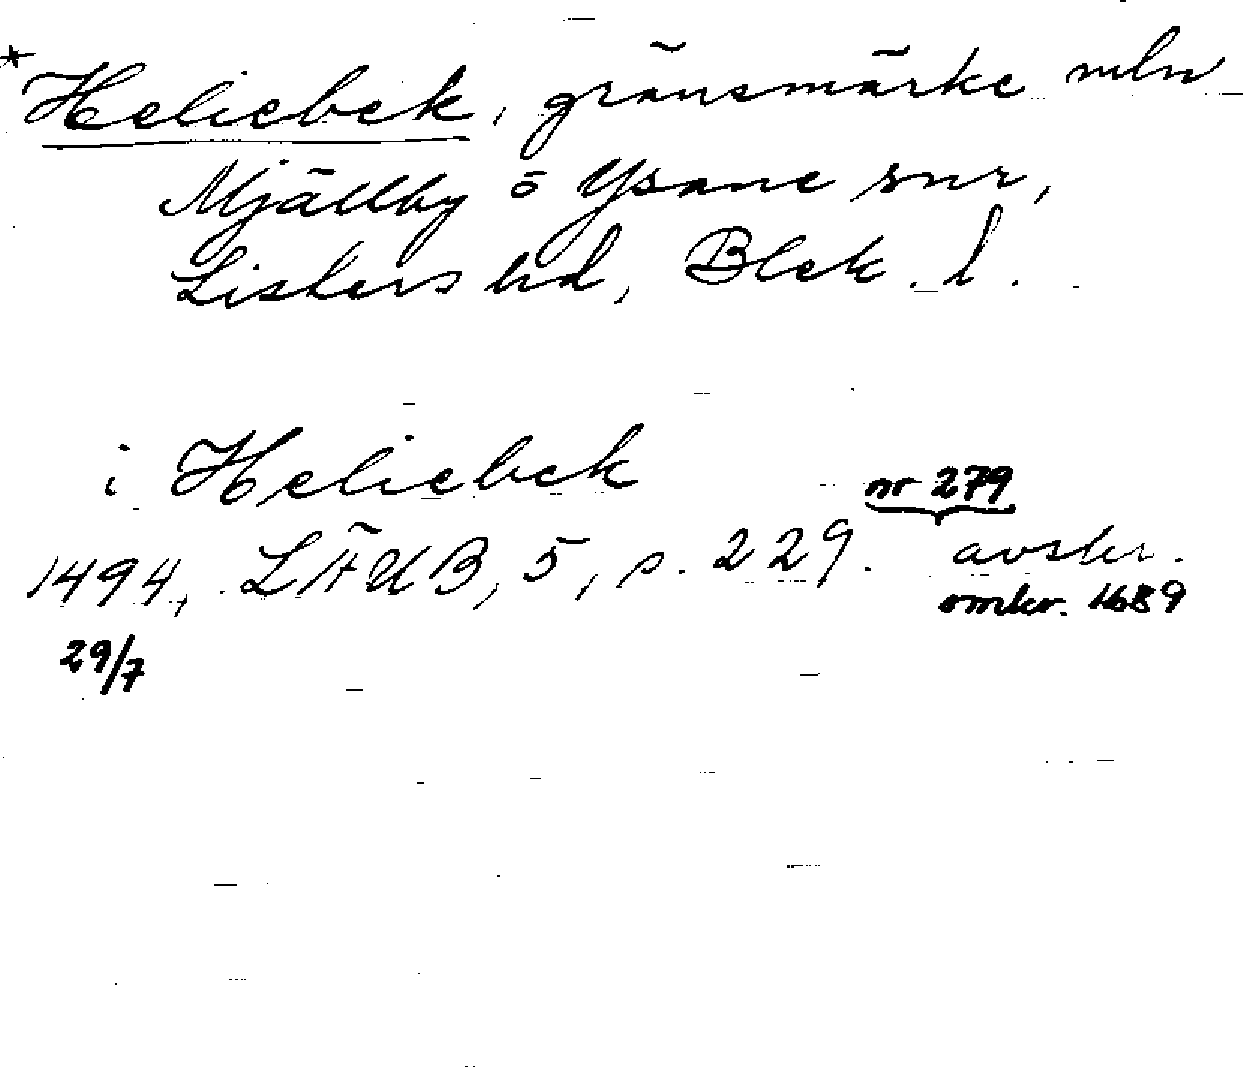 * Heliebek, gränsmärke mln
Mjällby o Ysane snr,
Listers hd, Blek. l.
i Heliebek
nr 279
1494, LÄUB, 5, s. 229. avskr.
omkr. 1689
29/7